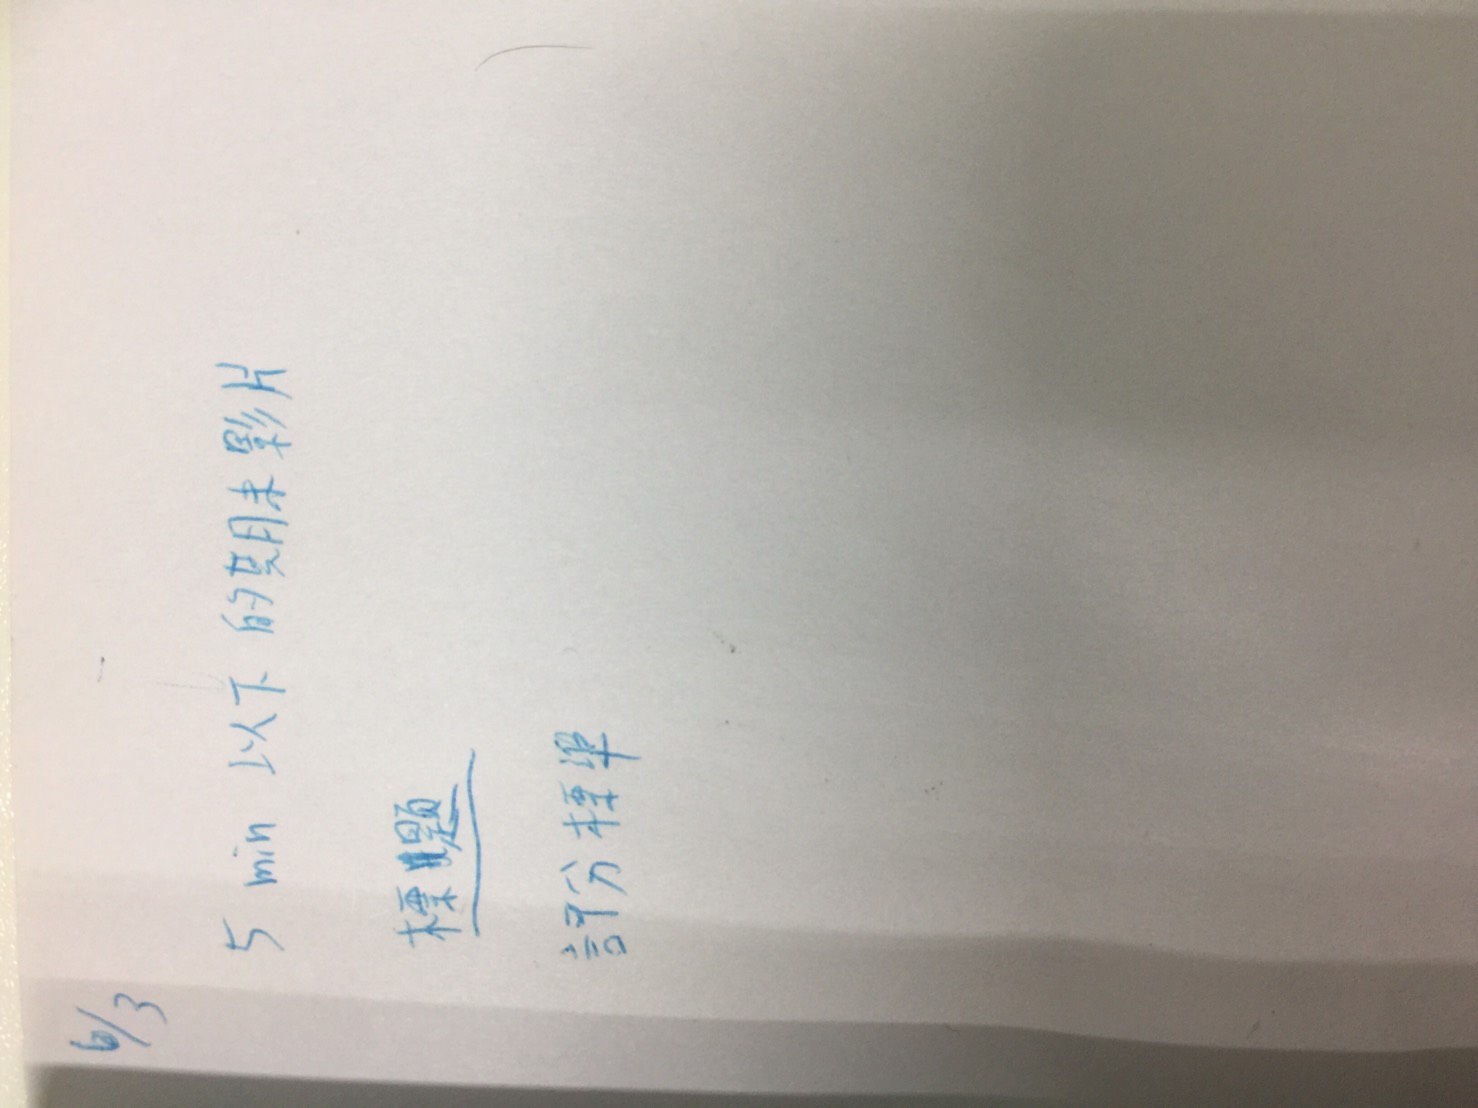 6/3
5 min 以下 的期末影片
標題
評分標準